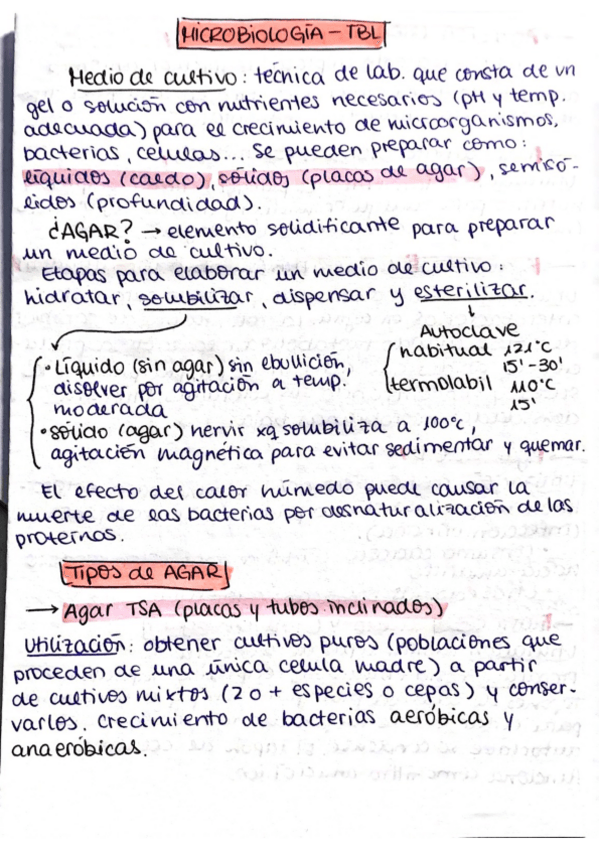 MICROBIOLOGÍA - TBL
Medio de cultivo: técnica de lab. que consta de un
gel o solución con nutrientes necesarios (pH y temp.
adecuada) para el crecimiento de microorganismos,
bacterias, celulas... Se pueden preparar como:
líquidos (caldo), sólidos (placas de agar), semisó-
lidos (profundidad).
¿AGAR? → elemento solidificante para preparar
un medio de cultivo.
Etapas para elaborar un medio de cultivo:
hidratar, solubilizar, dispensar y esterilizar.
Autoclave
habitual 121°C
15'-30'
termolabil 110°C
15'
• Líquido (sin agar) sin ebullición,
disolver por agitación a temp.
moderada
• sólido (agar) hervir xq solubiliza a 100°c,
agitación magnética para evitar sedimentar y quemar.
El efecto del calor húmedo puede causar la
muerte de las bacterias por desnaturalización de las
proteínas.
Tipos de AGAR
→ Agar TSA (placas y tubos inclinados)
Utilización: obtener cultivos puros (poblaciones que
proceden de una única celula madre) a partir
de cultivos mixtos (2 o + especies o cepas) y conser-
varlos. Crecimiento de bacterias aeróbicas y
anaeróbicas.